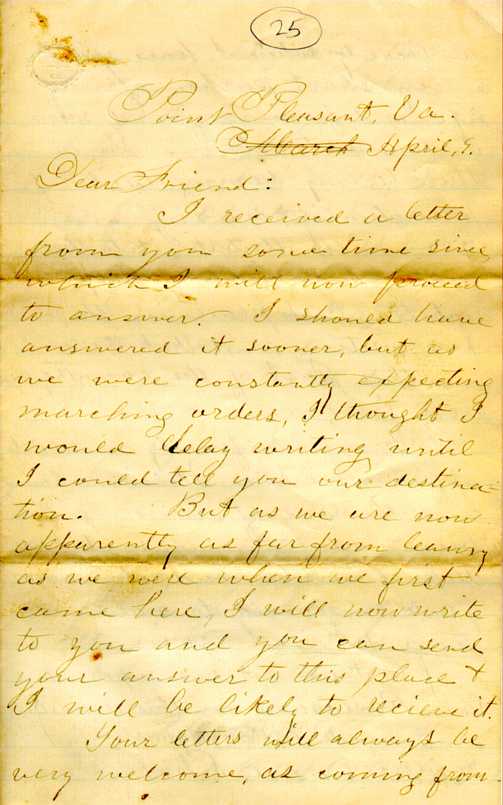 25
Point Pleasant, Va.
March April, 9.
Dear Friend:
I received a letter
from you some time since
which I will now proceed
to answer. I should have
answered it sooner, but as
we were constantly expecting
marching orders, I thought I
would delay writing until
I could tell you our destina-
tion. But as we are now
apparently as far from leaving
as we were when we first
came here, I will now write
to you and you can send
your answer to this place &
I will be likely to recieve it.
Your letters will always be
very welcome, as coming from